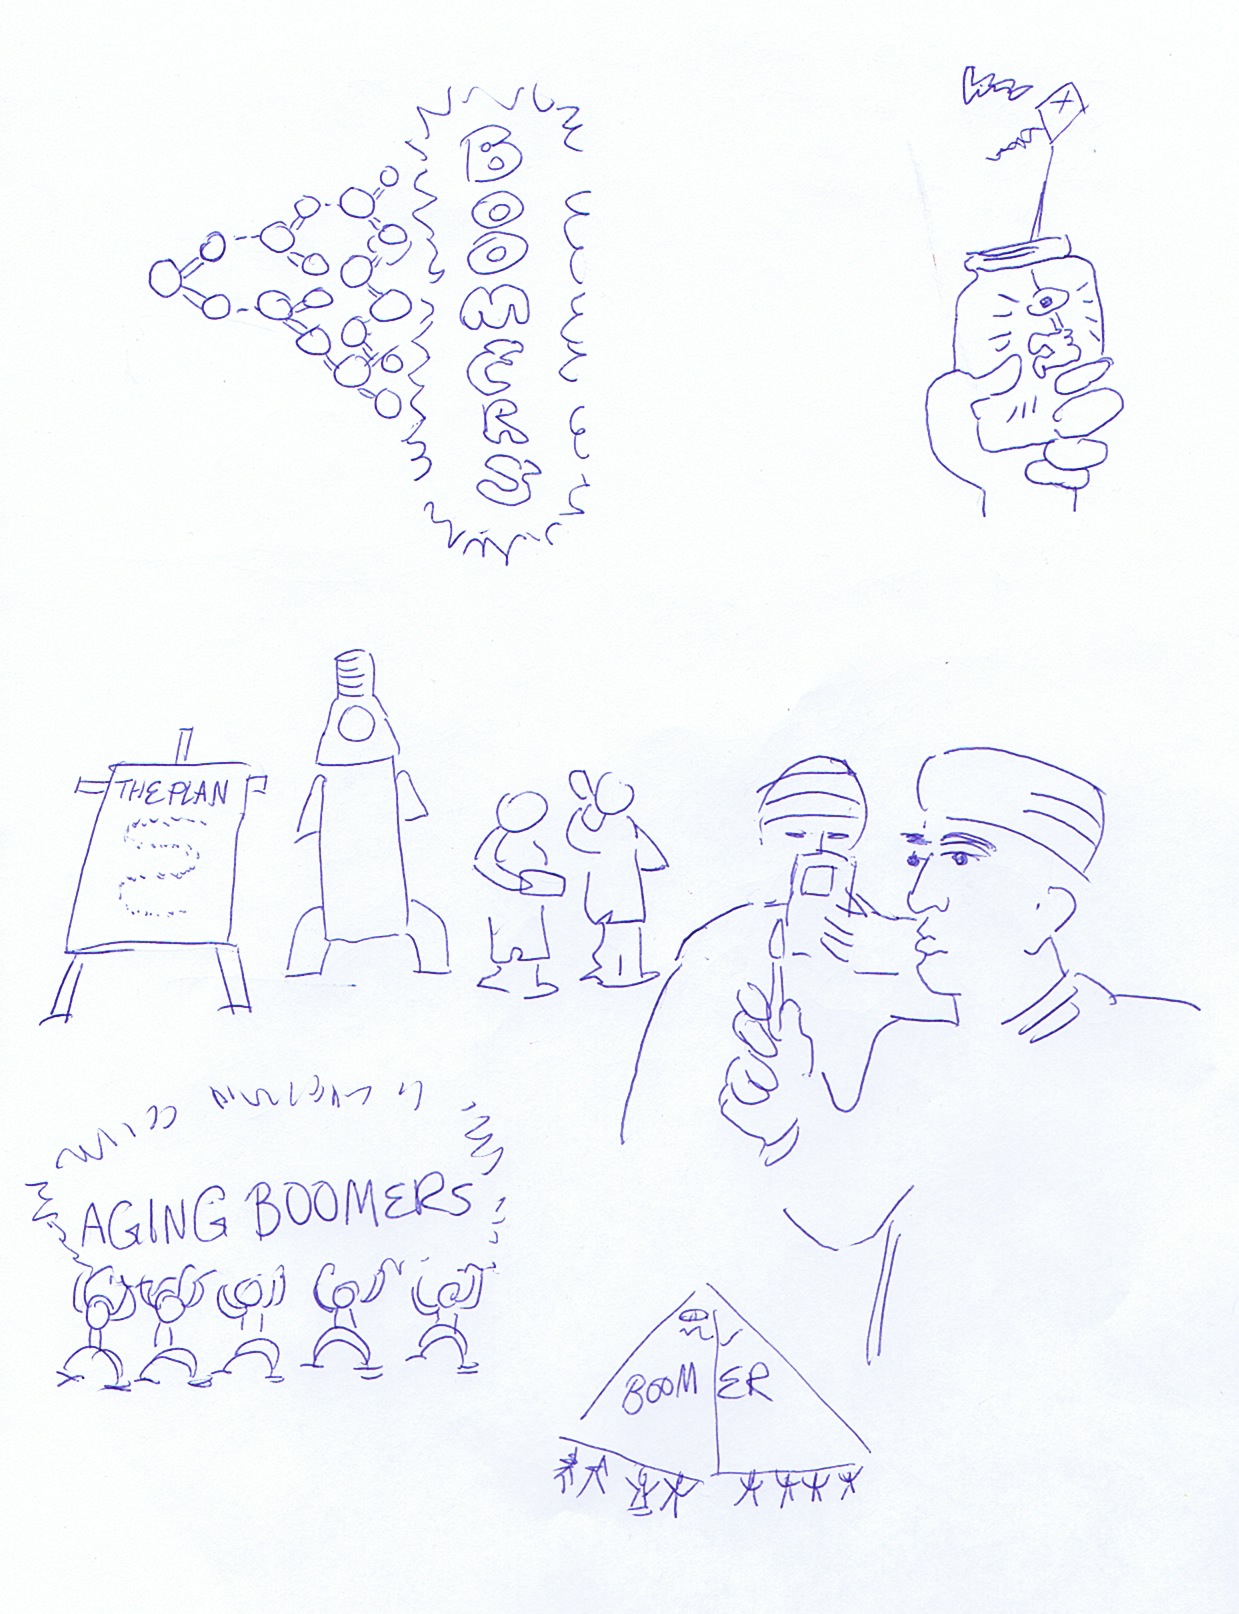 BOOMERS
THE PLAN
AGING BOOMERS
BOOMER